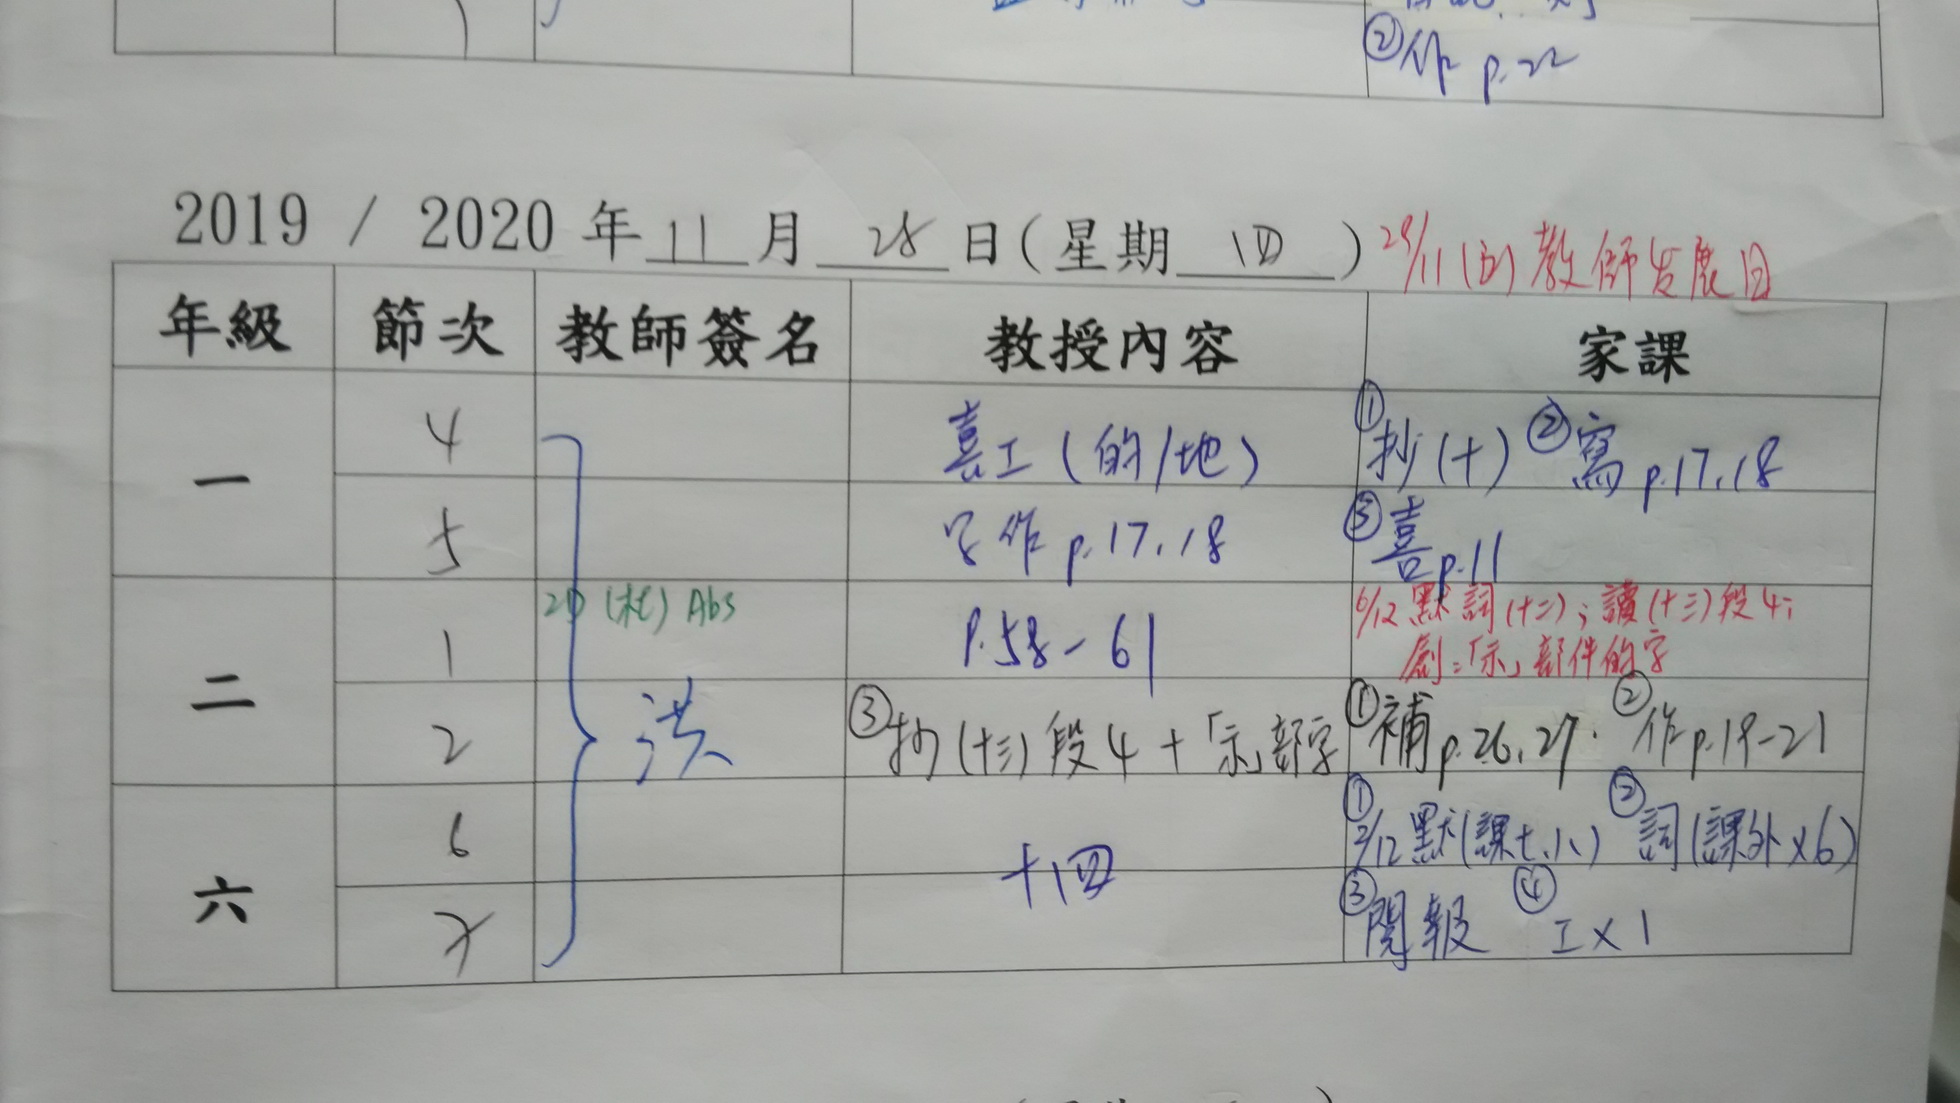 ② 作 p.22
2019 / 2020 年 11 月 28 日(星期 四 ) 29/11 (五) 教師发展日
年級 節次 教師簽名 教授內容 家課
一 4 喜工 (的/地) ①抄(十) ②寫 p.17.18
5 作 p.17.18 ③喜 p.11
二 1 2D Abs p.58-61 6/12 默詞(十二)；讀(十三)段4；
創：「示」部件的字
2 洪 ③抄(十三)段4+「示」部字 ①補 p.26.27. ②作 p.19-21
六 6 十四 ①2/12 默(課七、八) ②詞(課外x6)
7 ③閱報 ④工x1